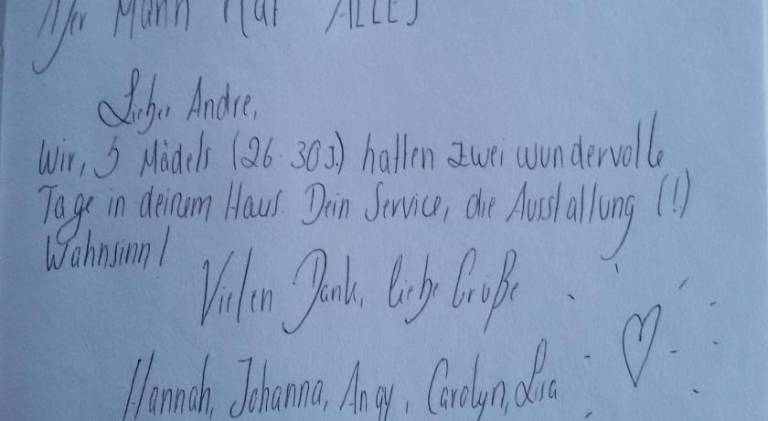 Der Mann hat ALLES
Lieber Andre,
Wir, 5 Mädels (26-30J.) hatten zwei wundervolle
Tage in deinem Haus. Dein Service, die Ausstattung (!)
Wahnsinn!
Vielen Dank, liebe Grüße
Hannah, Johanna, Angy, Carolyn, Lisa